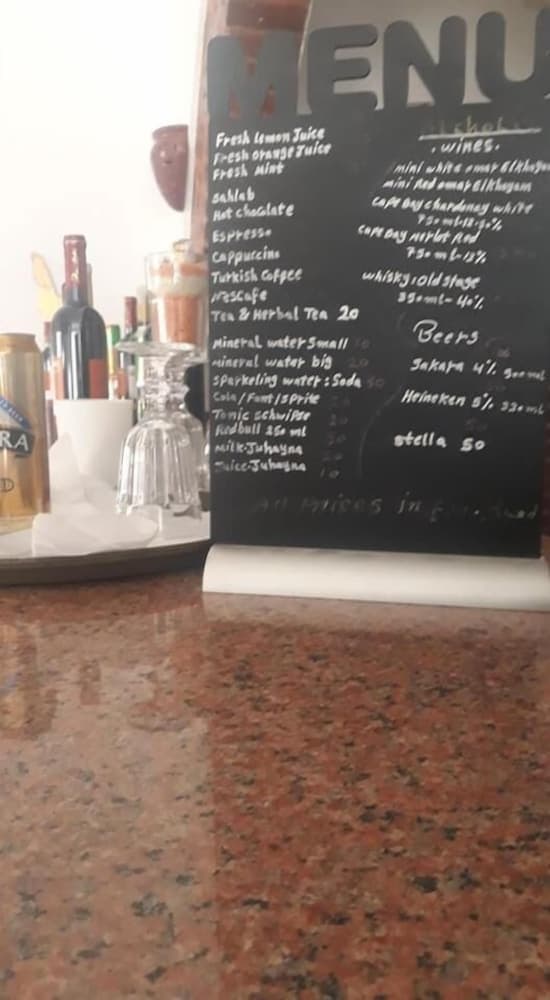 MENU
Fresh Lemon Juice
Fresh orange Juice
Fresh Mint
Sahlab
Hot chocalate
Espresso
Cappuccino
Turkish Coffee
Nescafe
Tea & Herbal Tea 20
Mineral water Small
mineral water big 20
Sparkeling water : Soda 50
Cola/Fant/Sprite
Tonic Schwipse
Redbull 250 ml
Milk-Juhayna
Juice-Juhayna 10
. wines .
mini white omar Elkhayam
mini Red omar Elkhayam
Cape Bay chardonay white
750 ml-
Cape Bay Merlot Red
750 ml-13%
whisky: old stage
350 ml- 40%
Beers
Sakara 4% 500 ml
Heineken 5% 330 ml
stella 50
All Prices in
RA